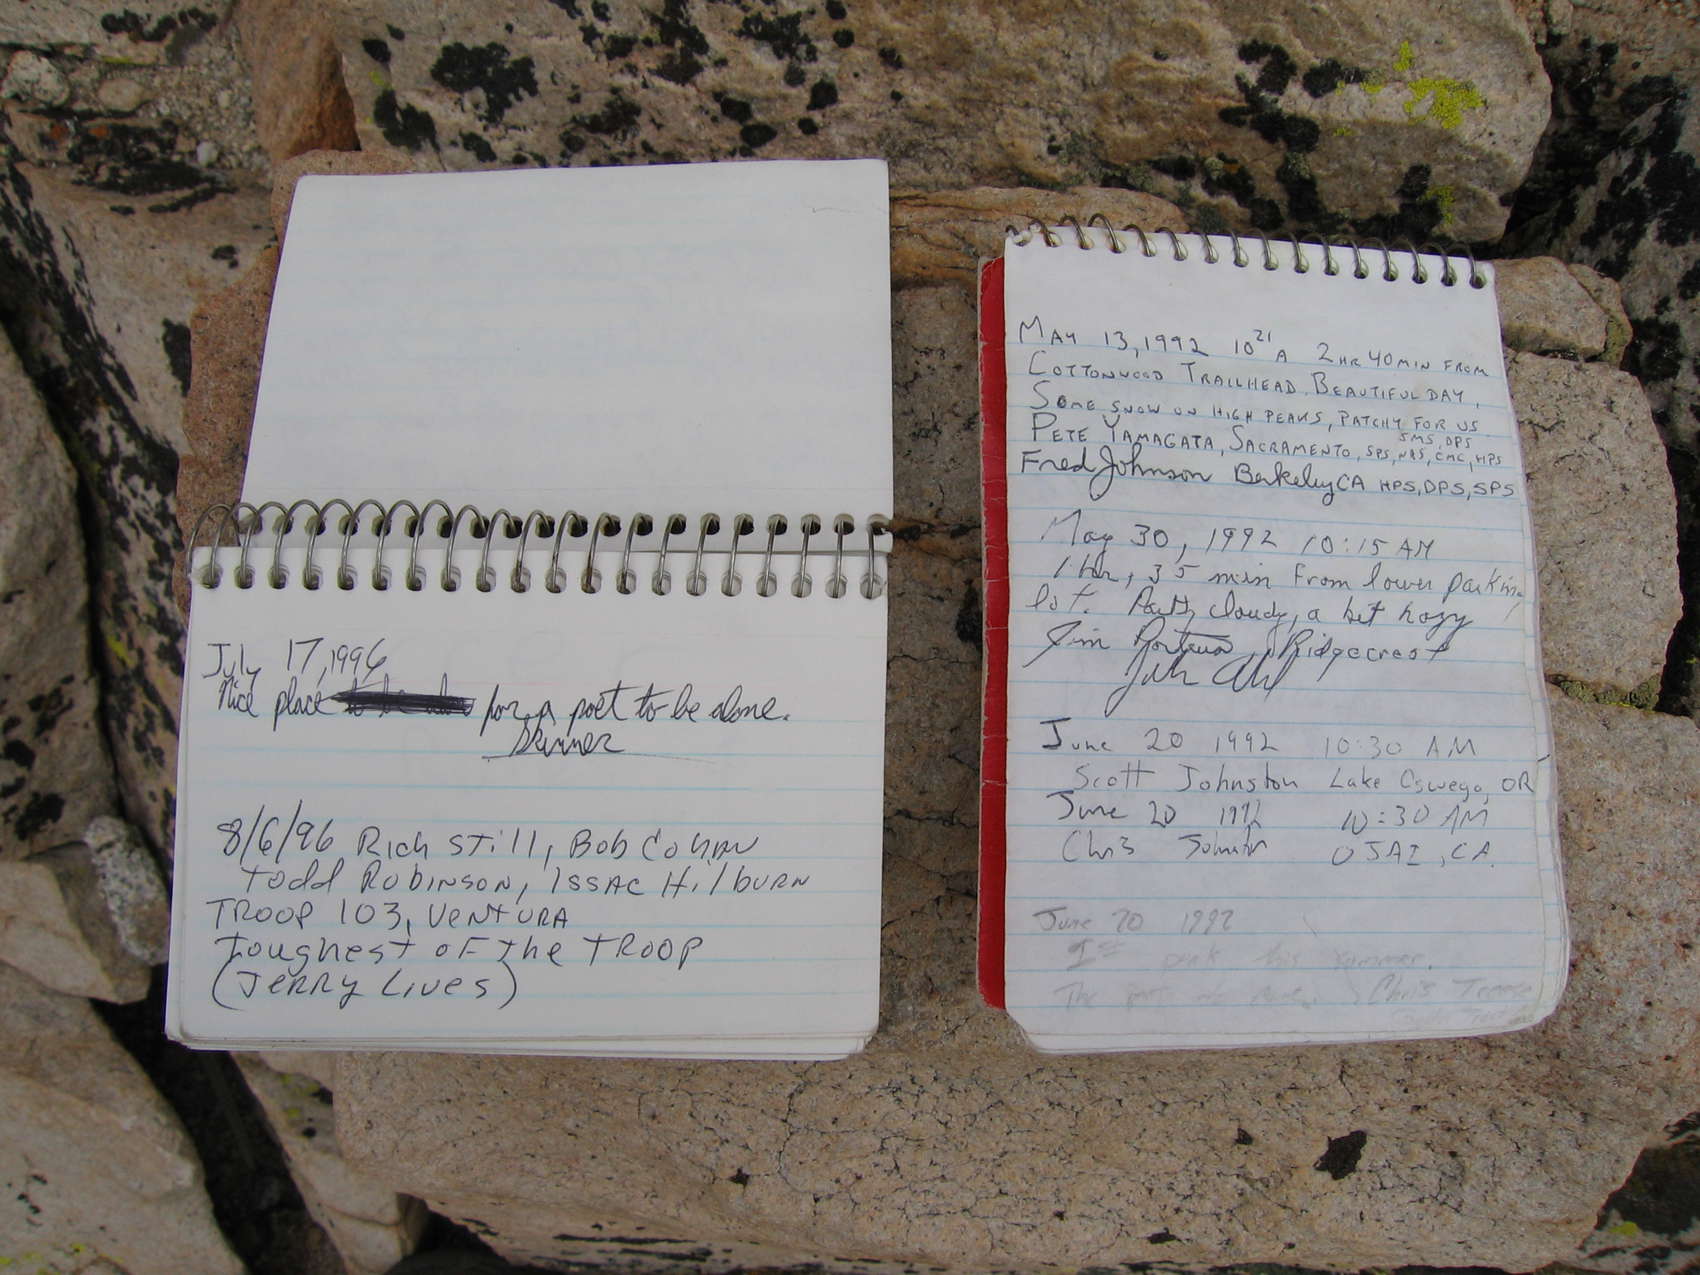 July 17, 1996
Nice place for a poet to be alone.
Skinner
8/6/96 Rich Still, Bob Cohan
Todd Robinson, Issac Hilburn
TROOP 103, VENTURA
Toughest of the TROOP
(Jerry Lives)
MAY 13, 1992 10²¹ A 2 HR 40 MIN FROM
COTTONWOOD TRAILHEAD. BEAUTIFUL DAY.
SOME SNOW ON HIGH PEAKS, PATCHY FOR US.
SMS, DPS
PETE YAMAGATA, SACRAMENTO, SPS, NAS, CMC, HPS
Fred Johnson Berkeley CA HPS, DPS, SPS
May 30, 1992 10:15 AM
1 hr, 35 min from lower parkin
lot. Partly cloudy, a bit hazy
Jim Ridgecrest
John
June 20 1992 10:30 AM
Scott Johnston Lake Oswego, OR
June 20 1992 10:30 AM
Chris Johnston OJAI, CA.
June 20 1992
1st peak this summer.
The Chris